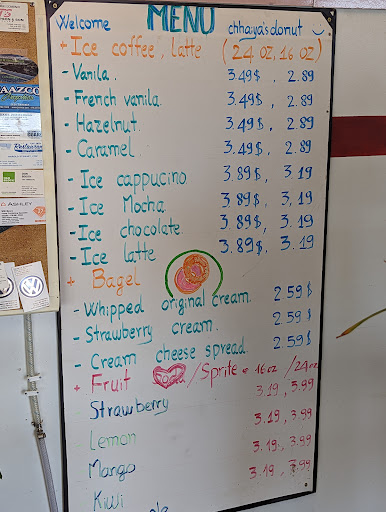 MENU
Welcome chhaya's donut
+ Ice coffee, latte (24 oz, 16 oz)
- Vanila. 3.49$, 2.89
- French vanila. 3.49$, 2.89
- Hazelnut. 3.49$, 2.89
- Caramel. 3.49$, 2.89
- Ice cappucino 3.89$, 3.19
- Ice Mocha 3.89$, 3.19
- Ice chocolate 3.89$, 3.19
- Ice latte 3.89$, 3.19
+ Bagel
- Whipped original cream. 2.59$
- Strawberry cream. 2.59$
- Cream cheese spread. 2.59$
+ Fruit /Sprite 16oz /24oz
Strawberry 3.19, 3.99
Lemon 3.19, 3.99
Mango 3.19, 3.99
Kiwi 3.19, 3.99
ASHLEY